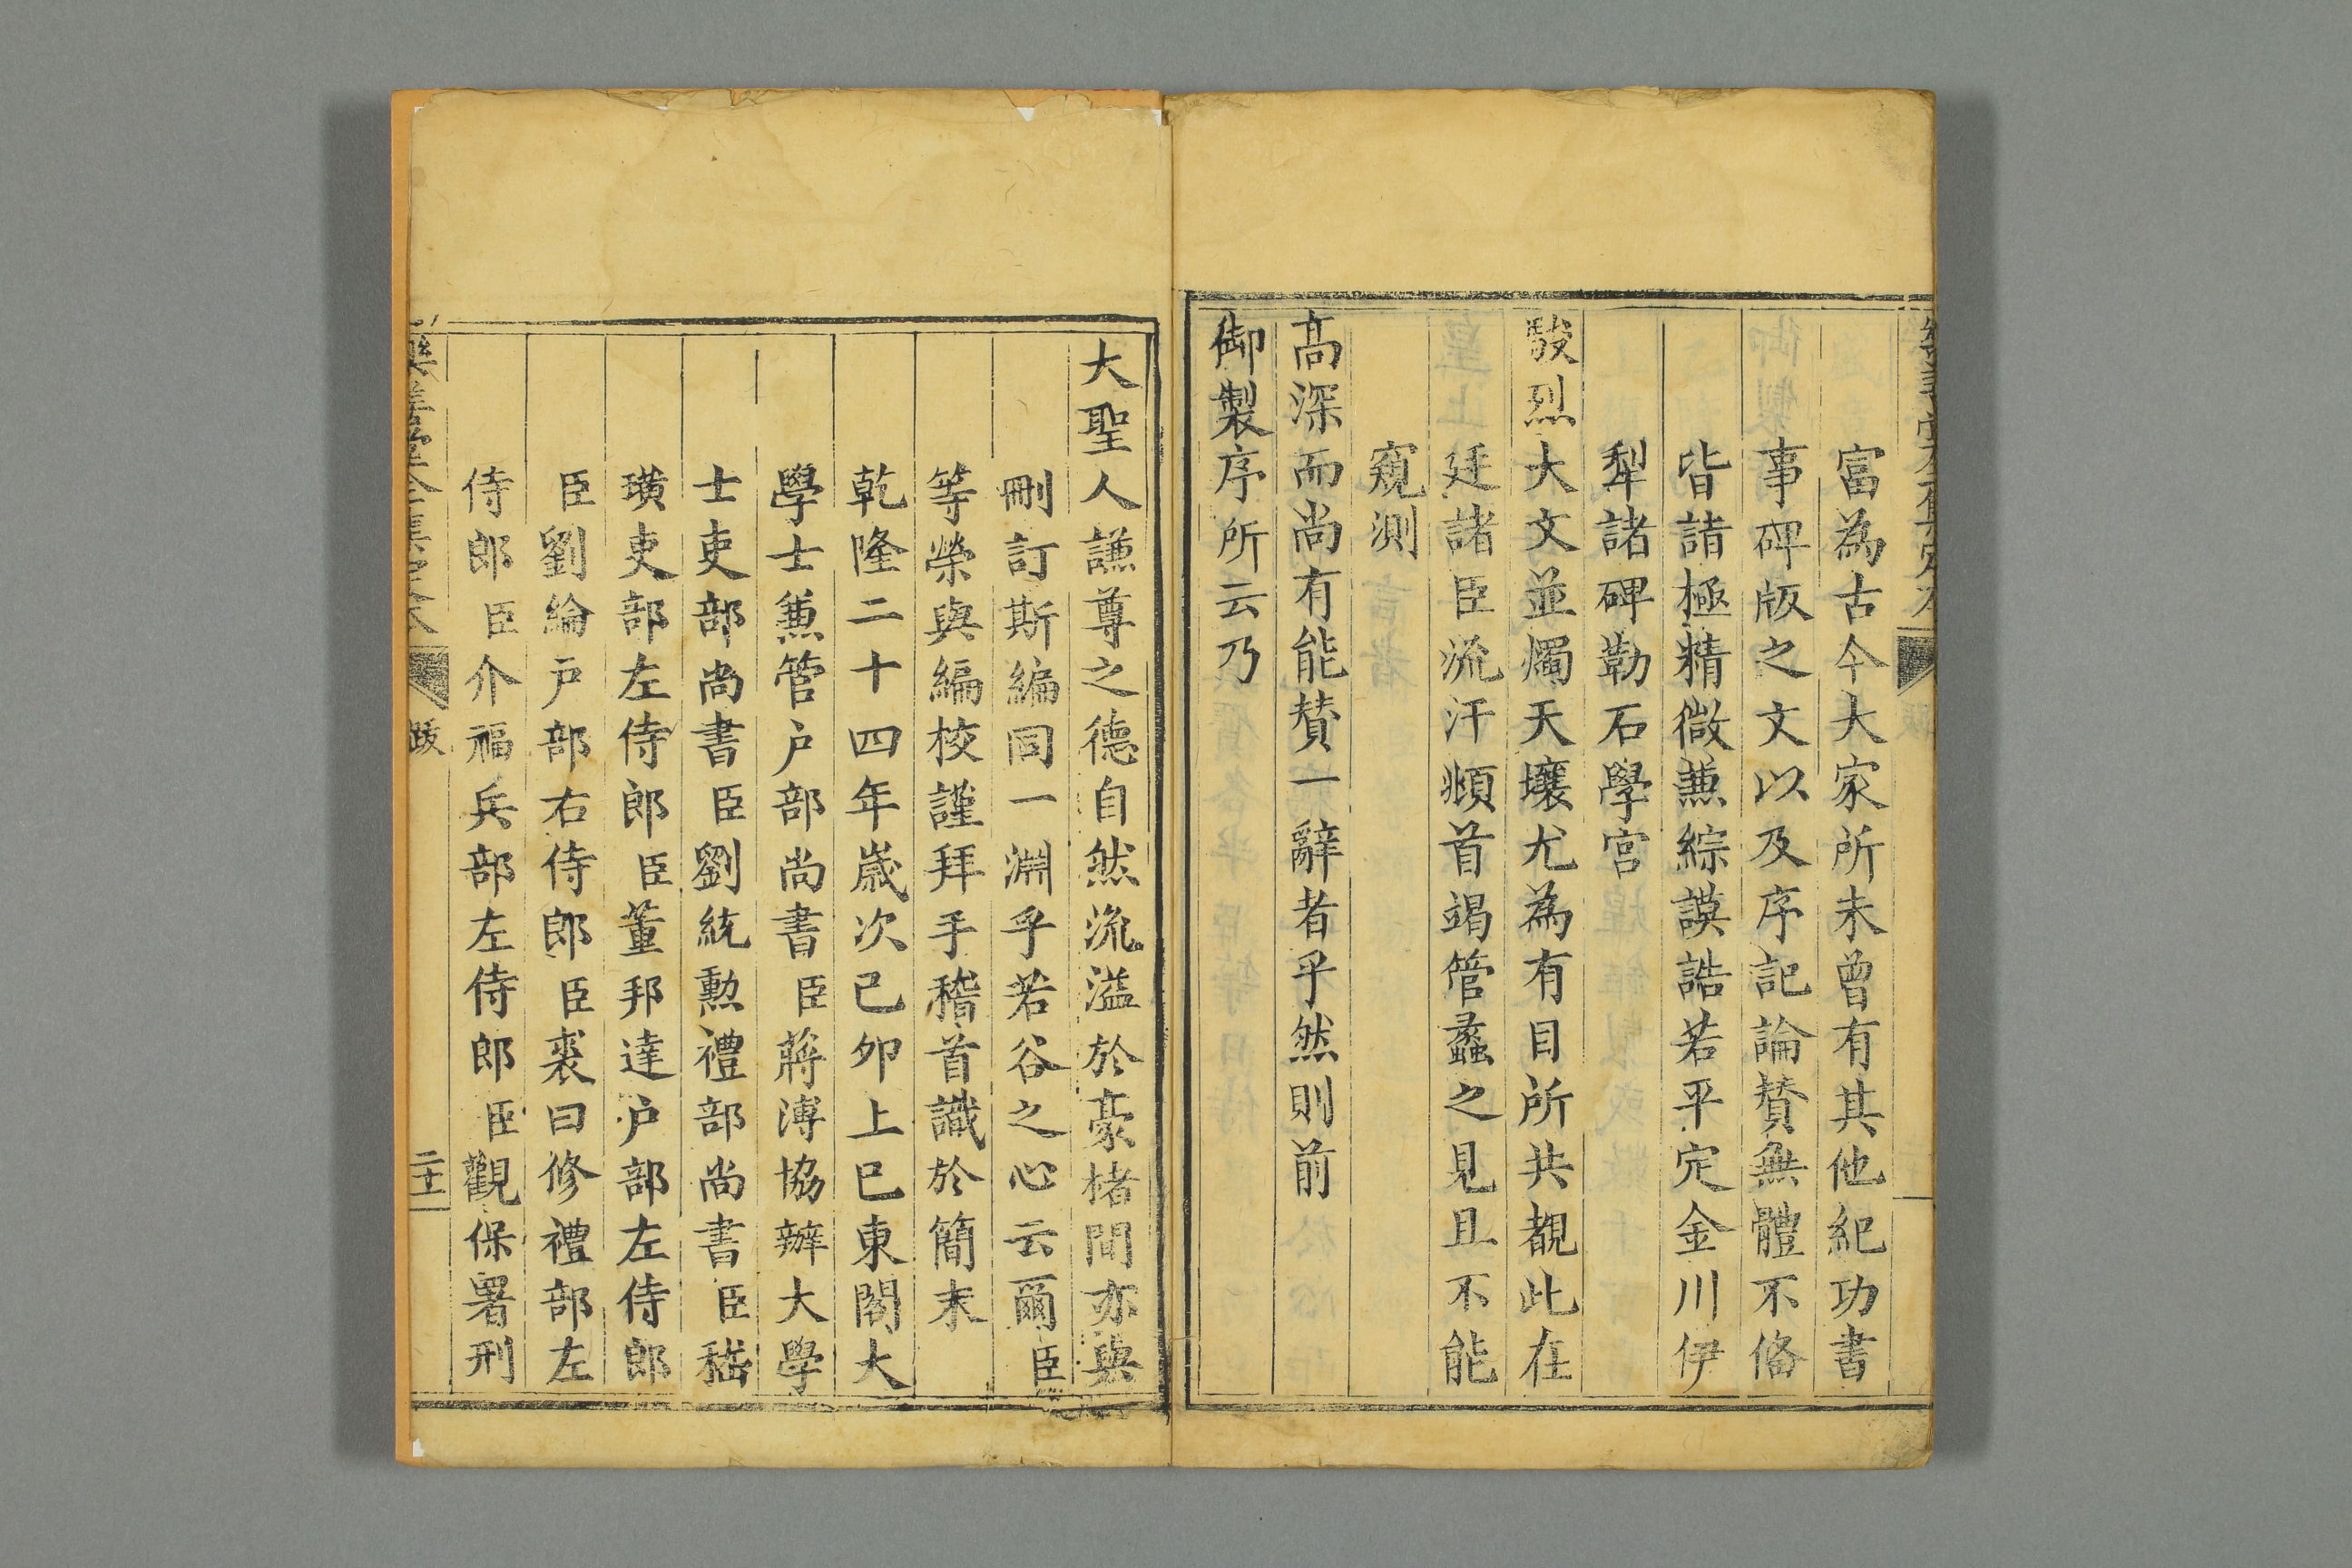 富為古今大家所未曾有其他紀功書
事碑版之文以及序記論賛無體不俻
皆詣極精微蕭綜謨誥若平定金川伊
犁諸碑勒石學宮
駿烈大文並燭天壤尤為有目所共覩此在
廷諸臣流汗頫首竭管蠡之見且不能
窺測
高深而尚有能賛一辭者乎然則前
御製序所云乃
大聖人謙尊之德自然流溢於豪楮間亦與
刪訂斯編同一淵乎若谷之心云爾臣
等榮與編校謹拜手稽首識於簡末
乾隆二十四年嵗次己夘上巳東閣大
學士兼管户部尚書臣蔣溥協辦大學
士吏部尚書臣劉統勲禮部尚書臣嵇
璜吏部左侍郎臣董邦達户部左侍郎
臣劉綸户部右侍郎臣裘曰修禮部左
侍郎臣介福兵部左侍郎臣觀保署刑
樂善堂全集定本
跋
二十一